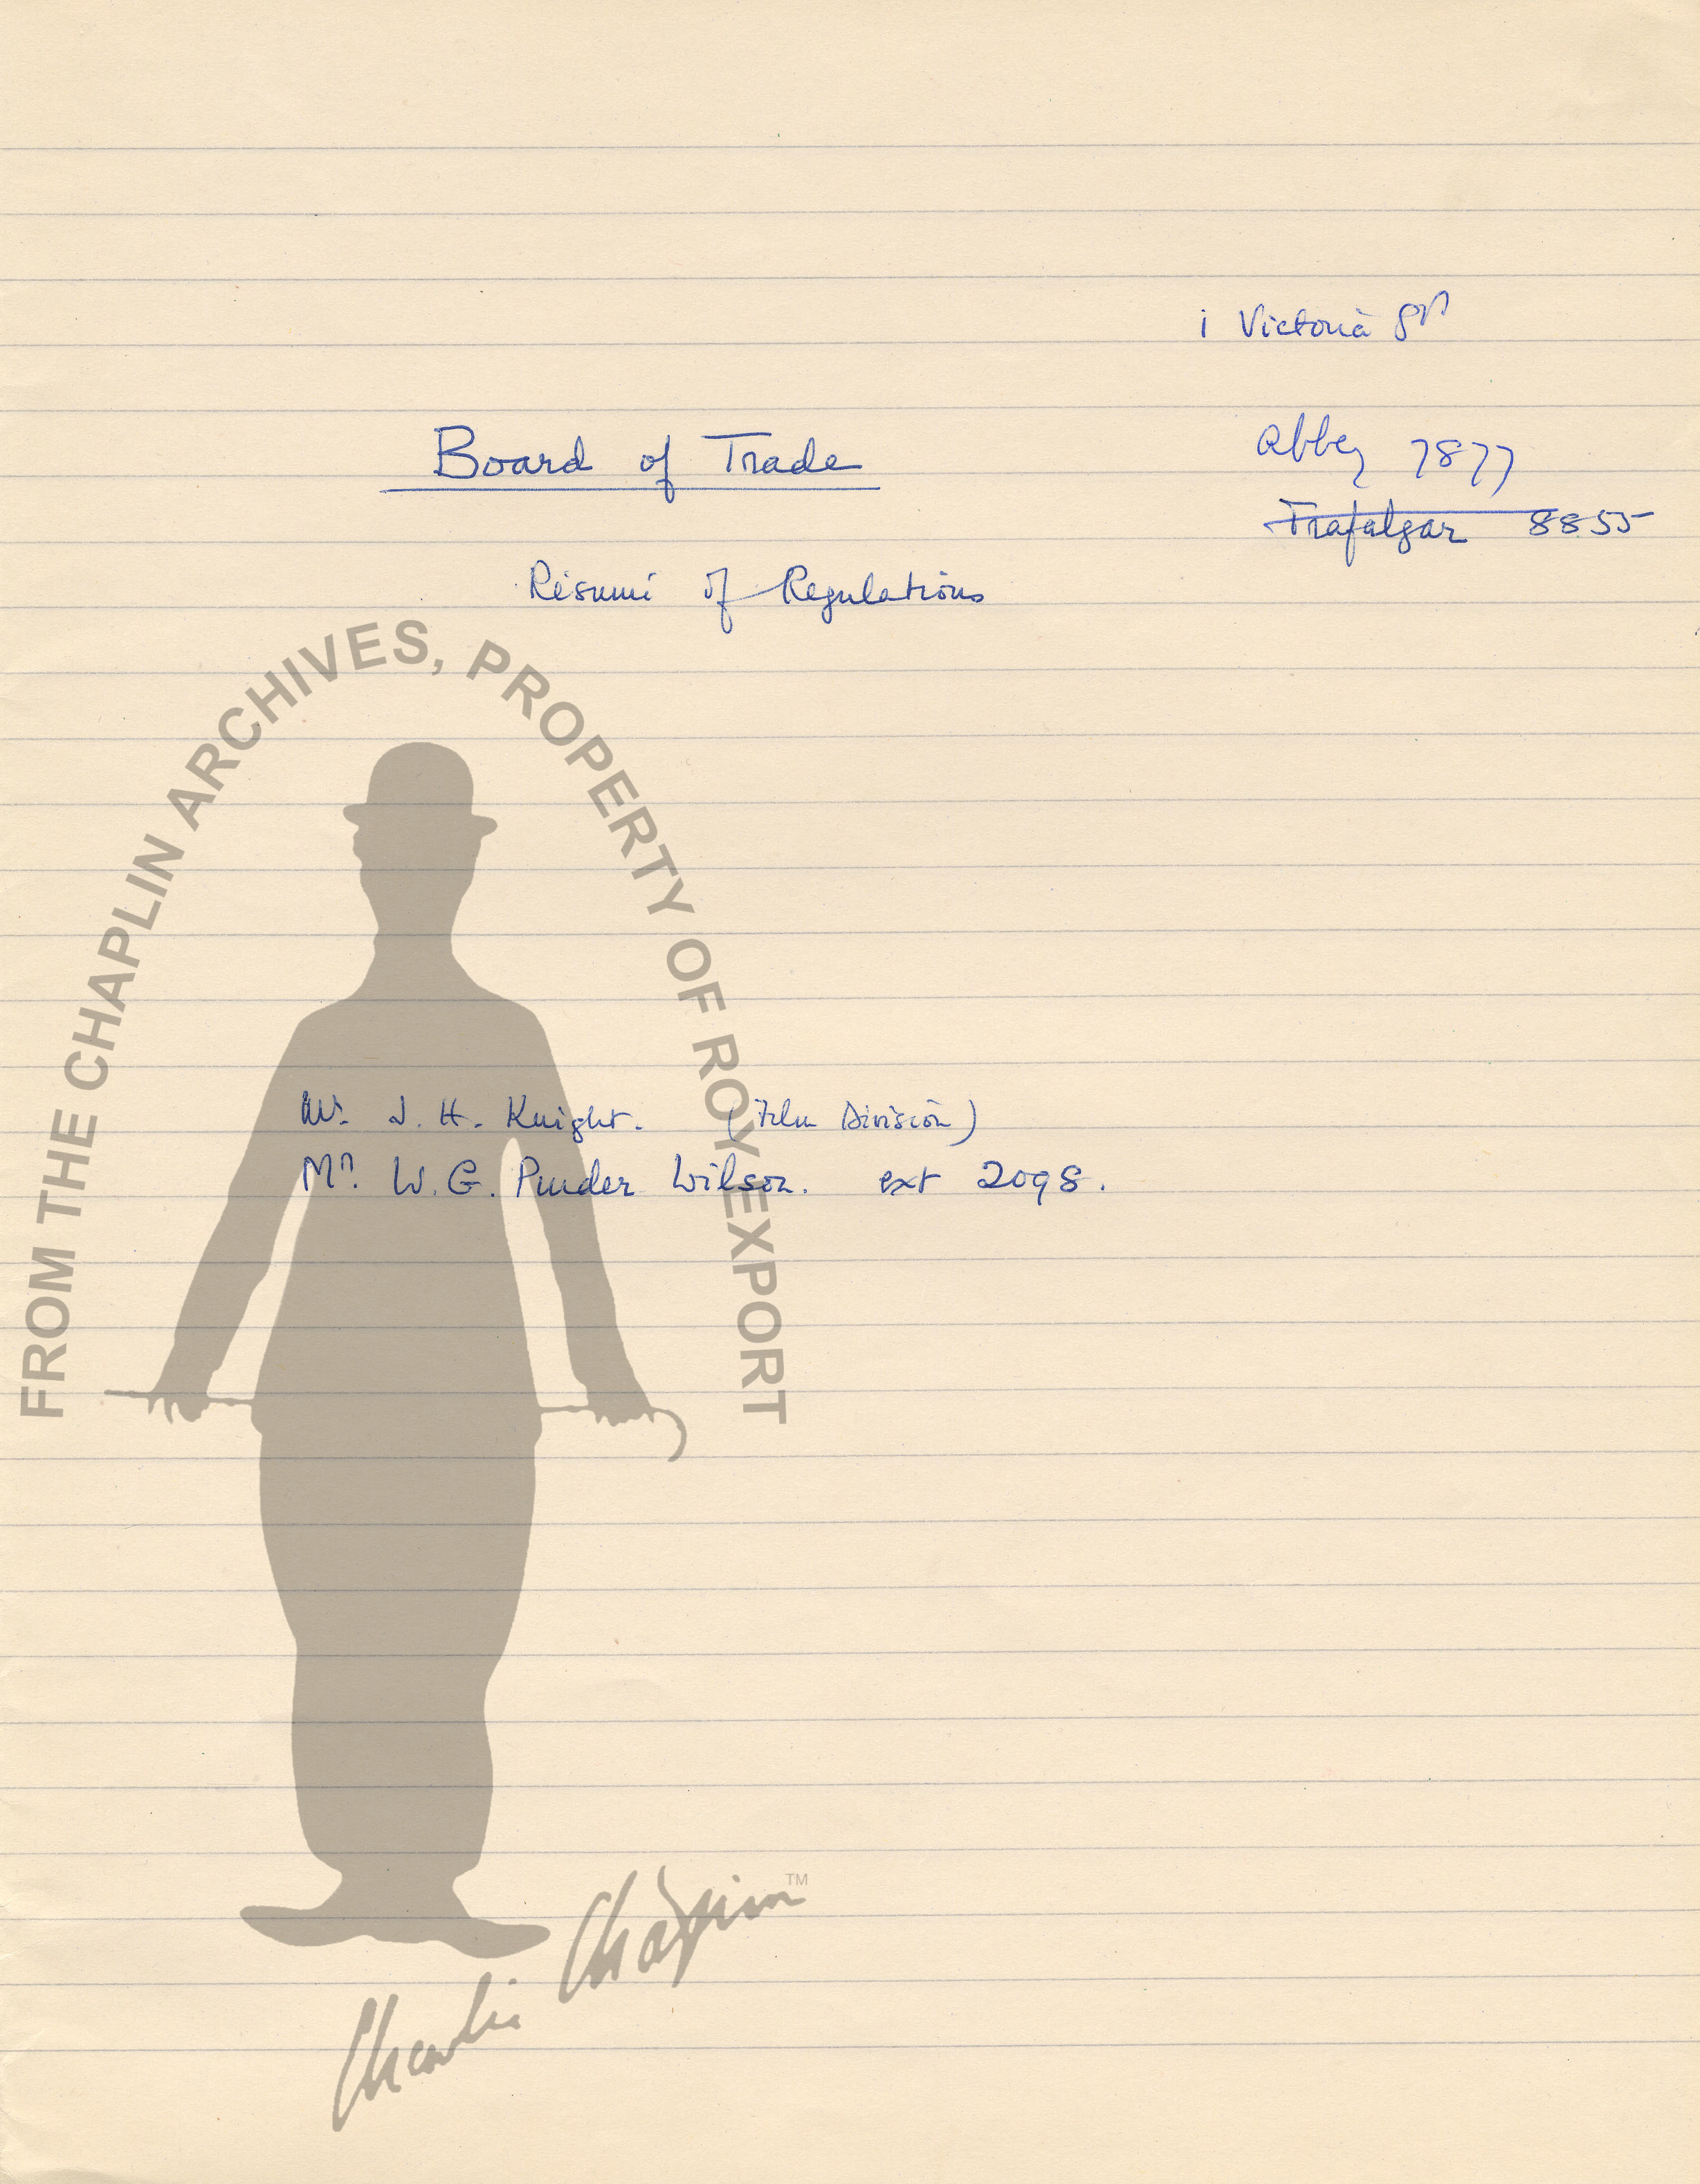 1 Victoria St
Abbey 7877
Board of Trade
Trafalgar 8855
Résumé of Regulations
FROM THE CHAPLIN ARCHIVES, PROPERTY OF ROY EXPORT
Mr. J. H. Knight. (Film Division)
Mr. W. G. Pinder Wilson. ext 2098.
Charlie Chaplin™